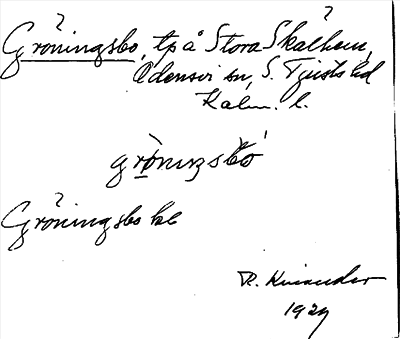 ?
?
Gröningsbo, tp å Stora Skälhem,
Odensvi sn, S. Tjusts hd
Kalm. l.
grönıŋsbo
?
Gröningsbo ke
R. Kinander
1929